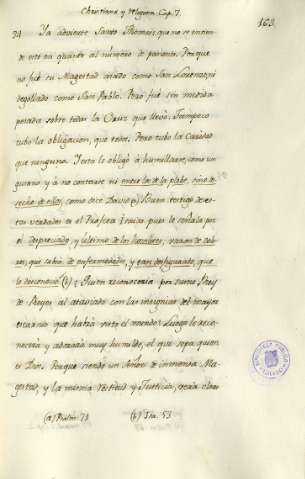 Christiana y Religiosa Cap. 7.
163
24 Ya advierte Santo Thomas, que no se entien-
de esto en quanto al número de Porque
no fué su Magestad asado como San Lorenzo, ni
degollado como San Pablo. Pero fué sin medida
pesada sobre todas la Cruz que llevó. Tampoco
tubo la obligacion, que todos. Pero tubo la Caridad
que ninguno. Y esta le obligó à humillarse, como un
gusano y à no contarse ni entre los de la plebe, sino de-
secho de ellos, como dice David (a) Buen testigo de es-
tas verdades es el Profeta Isaias, pues le señala por
el despreciado, y ultimo de los hombres, varon de dolo-
res, que sabia de enfermedades, y tan desfigurado, que
le desconoció (b). Quien reconoceria por sumo Rey
de Reyes al ataviado con las insignias del mayor
escarnio que había visto el mundo? Luego le reco-
noceria y adoraria muy humilde, el que sepa quien
es Dios. Porque siendo un Señor de inmensa Ma-
gestad, y la misma Justicia, era claro
(a) Psalm. 21
(b) Isa. 53